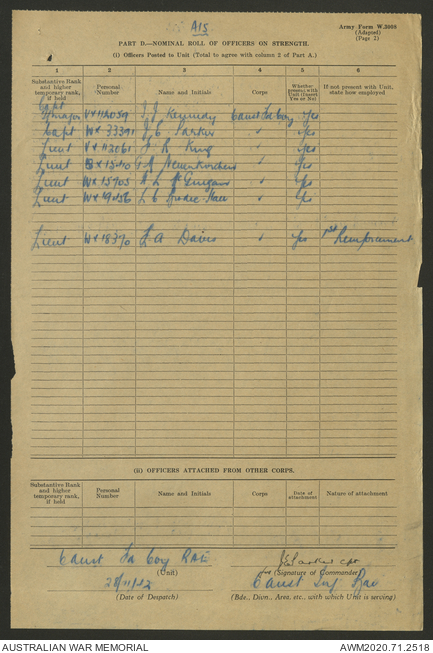 A15
Army Form W.3008
(Adapted)
(Page 2)
PART D.—NOMINAL ROLL OF OFFICERS ON STRENGTH.
(i) Officers Posted to Unit (Total to agree with column 2 of Part A.)
1 2 3 4 5 6
Substantive Rank and higher temporary rank, if held Personal Number Name and Initials Corps Whether present with Unit (Insert Yes or No) If not present with Unit, state how employed
Capt
VX112059 J. J. Kennedy Yes
Capt WX 33391 J E Parker " Yes
Lieut J R King " Yes
Lieut " Yes
Lieut WX 15905 " Yes
Lieut " Yes
Lieut WX 18370 L A Davies " Yes 1st Reinforcement
(ii) OFFICERS ATTACHED FROM OTHER CORPS.
Substantive Rank and higher temporary rank, if held Personal Number Name and Initials Corps Date of attachment Nature of attachment
Coy RAE
(Unit)
(Signature of Commander)
28/11/42
(Date of Despatch)
(Bde., Divn., Area, etc., with which Unit is serving)
AUSTRALIAN WAR MEMORIAL AWM2020.71.2518